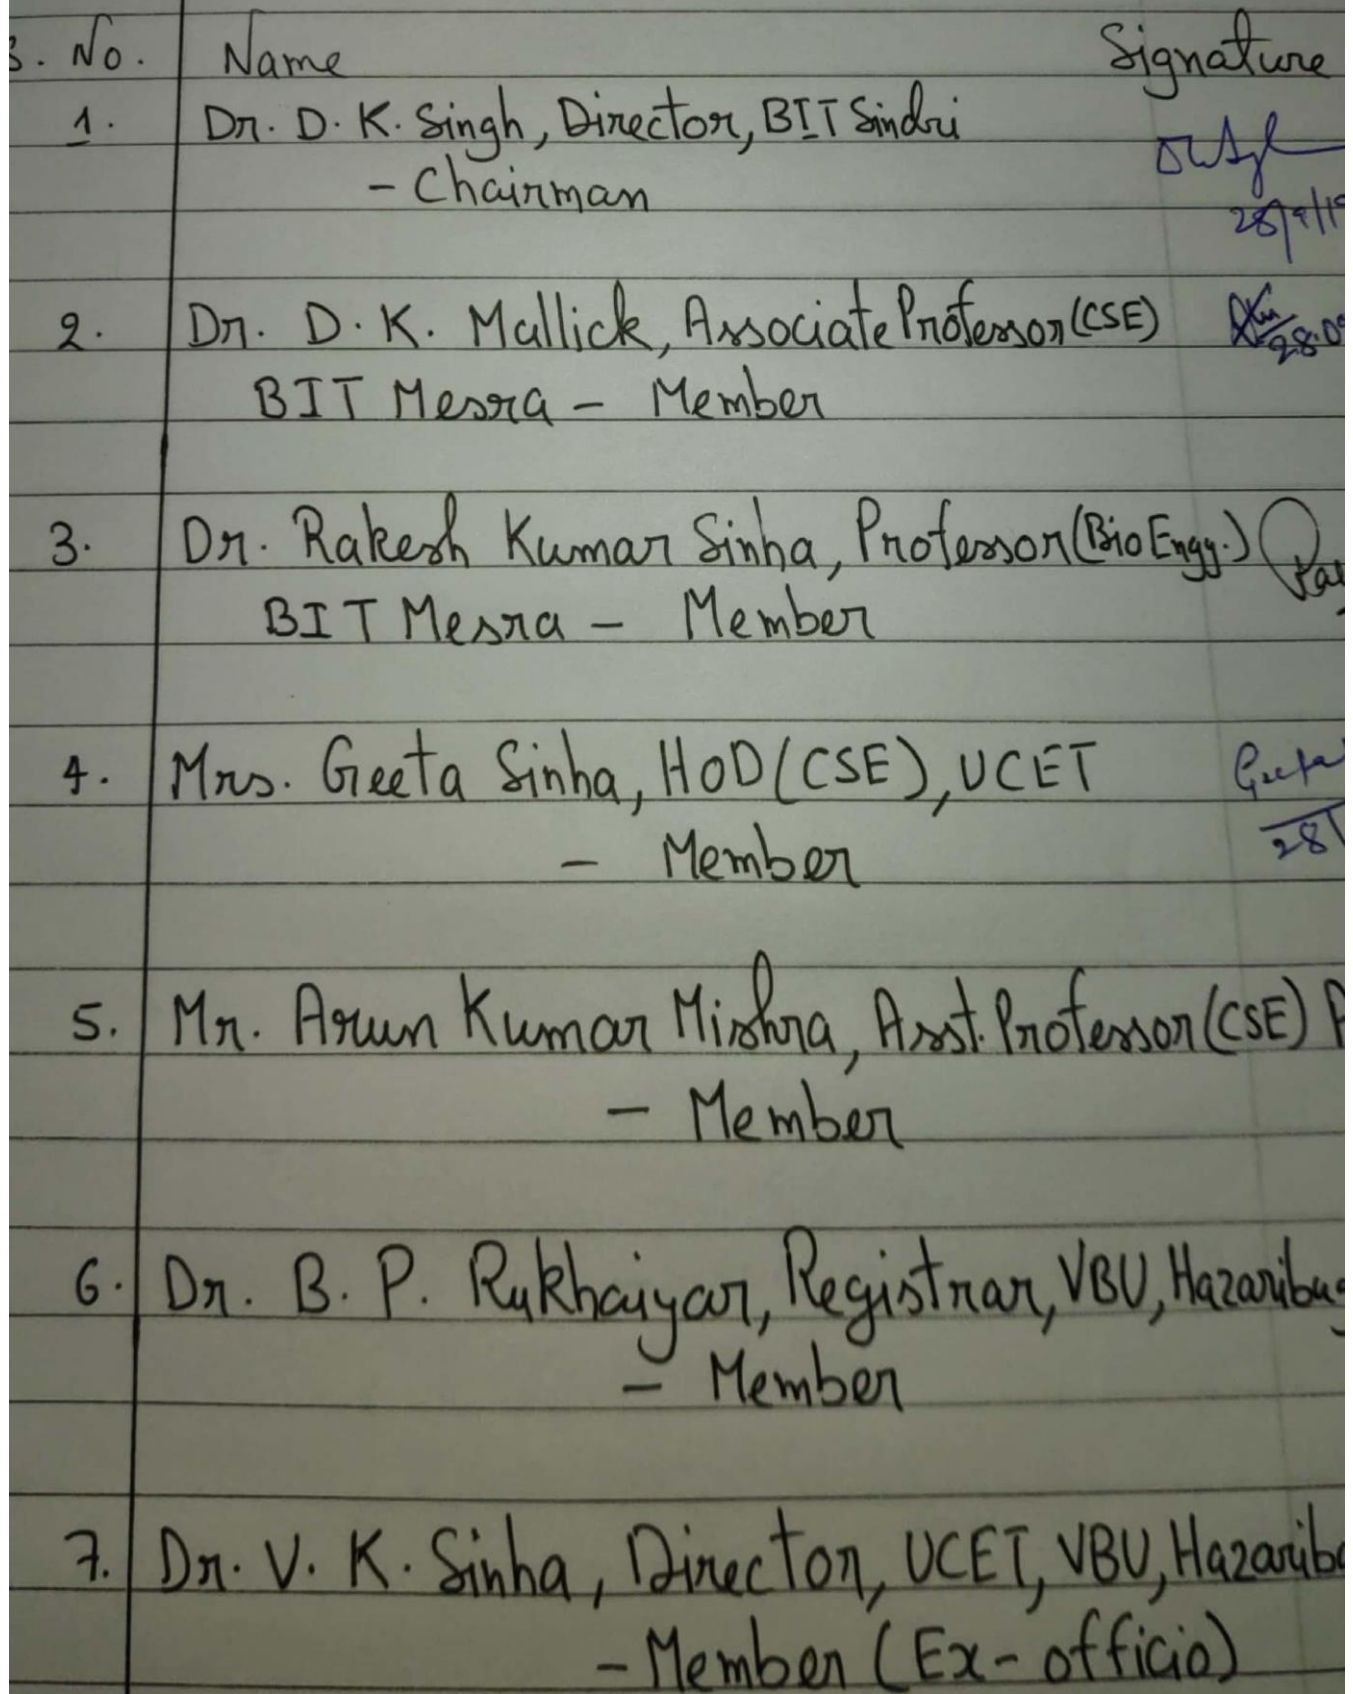 S. No. Name Signature
1. Dr. D. K. Singh, Director, BIT Sindri
- Chairman
28/9/19
2. Dr. D. K. Mallick, Associate Professor (CSE)
28.0
BIT Mesra - Member
3. Dr. Rakesh Kumar Sinha, Professor (Bio Engg.)
BIT Mesra - Member
4. Mrs. Geeta Sinha, HOD (CSE), UCET Geeta
- Member 28
5. Mr. Arun Kumar Mishra, Asst. Professor (CSE) A
- Member
6. Dr. B. P. Rukhaiyar, Registrar, VBU, Hazaribag
- Member
7. Dr. V. K. Sinha, Director, UCET, VBU, Hazariba
- Member (Ex-officio)